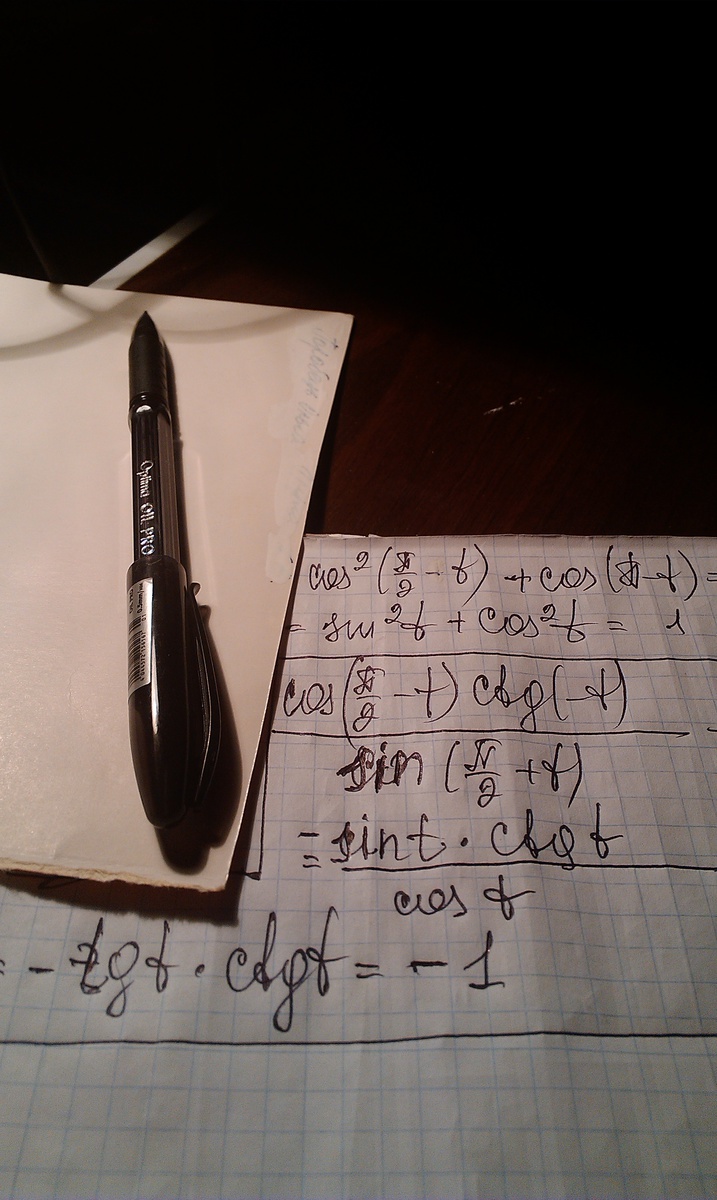 Optima OIL PRO
cos²(π/2 - t) + cos(π - t) =
= sin²t + cos²t = 1
cos(π/2 - t) ctg(-t)
sin(π/2 + t)
= sint · ctgt
cos t
= - tgt · ctgt = - 1